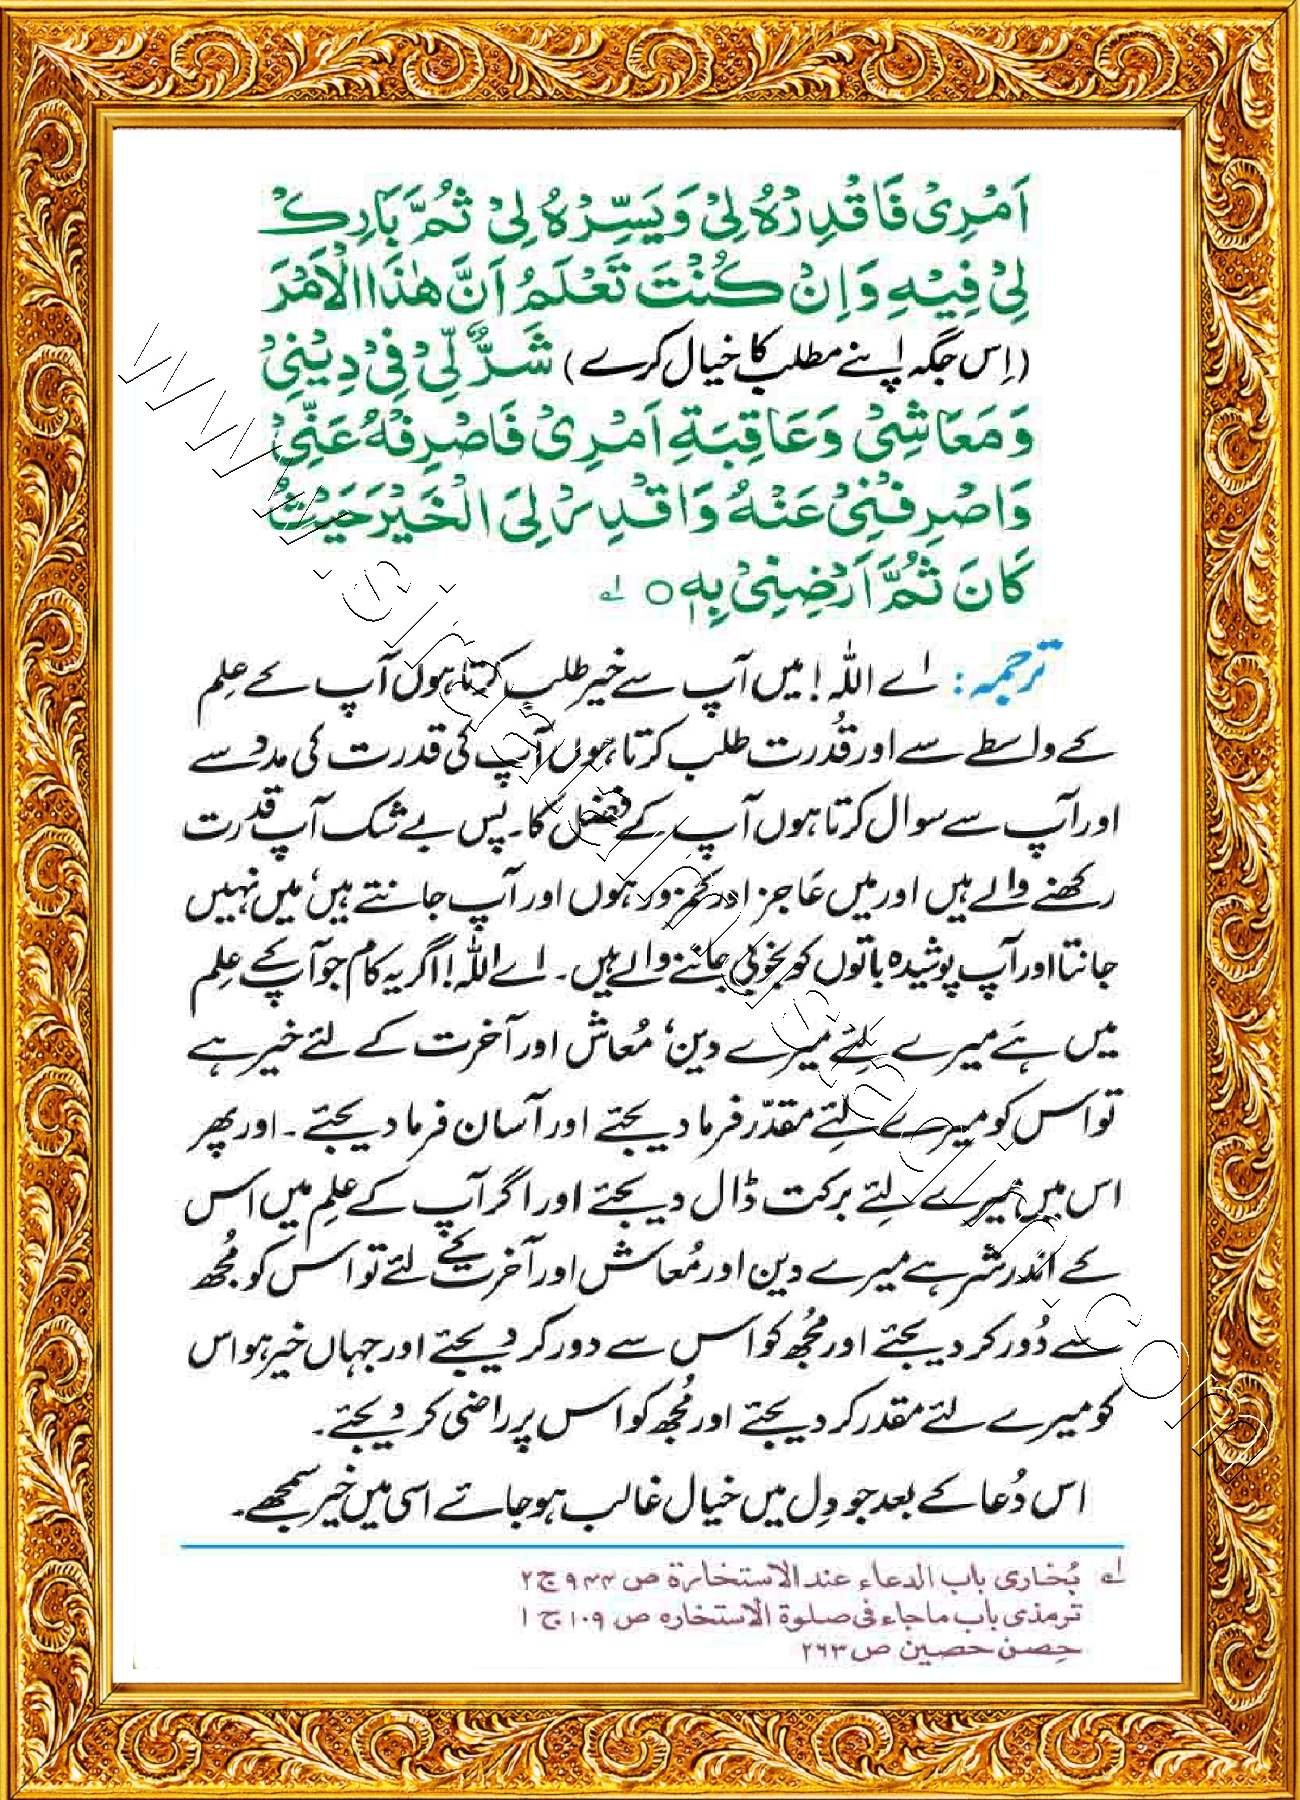 اَمْرِیْ فَاقْدِرْهُ لِیْ وَیَسِّرْهُ لِیْ ثُمَّ بَارِكْ
لِیْ فِیْهِ وَاِنْ كُنْتَ تَعْلَمُ اَنَّ هٰذَا الْاَمْرَ
(اِس جگہ اپنے مطلب کا خیال کرے) شَرٌّ لِّیْ فِیْ دِیْنِیْ
وَمَعَاشِیْ وَعَاقِبَةِ اَمْرِیْ فَاصْرِفْهُ عَنِّیْ
وَاصْرِفْنِیْ عَنْهُ وَاقْدِرْ لِیَ الْخَیْرَ حَیْثُ
كَانَ ثُمَّ اَرْضِنِیْ بِهٖ ○ لے
ترجمہ: اے اللہ! میں آپ سے خیر طلب کرتا ہوں آپ کے عِلم
کے واسطے سے اور قُدرت طلب کرتا ہوں آپ کی قدرت کی مدد سے
اور آپ سے سوال کرتا ہوں آپ کے فضل کا۔ پس بے شک آپ قدرت
رکھنے والے ہیں اور میں عَاجز اور کمزور ہوں اور آپ جانتے ہیں، میں نہیں
جانتا اور آپ پوشیدہ باتوں کو بخوبی جاننے والے ہیں۔ اے اللہ! اگر یہ کام جو آپ کے عِلم
میں ہَے میرے لِئے میرے دین، مُعاش اور آخرت کے لئے خیر ہے
تو اس کو میرے لِئے مقدّر فرما دیجئے اور آسان فرما دیجئے۔ اور پھر
اس میں میرے لِئے برکت ڈال دیجئے اور اگر آپ کے عِلم میں اس
کے اندر شر ہے میرے دین اور مُعاش اور آخرت کے لئے تو اس کو مُجھ
سے دُور کر دیجئے اور مُجھ کو اس سے دور کر دیجئے اور جہاں خیر ہو اس
کو میرے لئے مقدر کر دیجئے اور مُجھ کو اس پر راضی کر دیجئے۔
اس دُعا کے بعد جو دِل میں خیال غالب ہو جائے اسی میں خیر سمجھے۔
لے بُخاری باب الدعاء عند الاستخارة ص ۹۴۴ ج ۲
ترمذی باب ماجاء فی صلوة الاستخاره ص ۱۰۹ ج ۱
حِصن حصین ص ۲۶۳